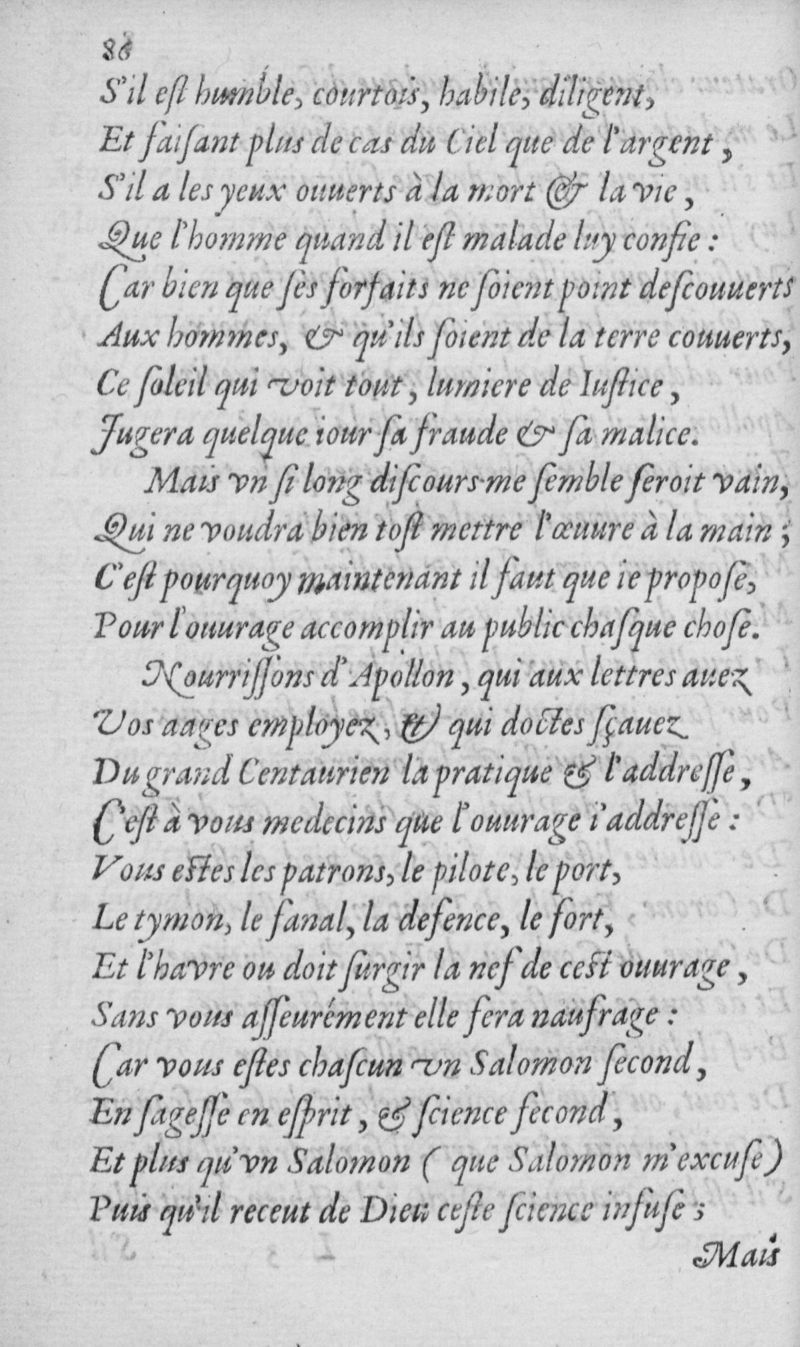 86
S'il eſt humble, courtois, habile, diligent,
Et faiſant plus de cas du Ciel que de l'argent,
S'il a les yeux ouuerts à la mort & la vie,
Que l'homme quand il eſt malade luy confie :
Car bien que ſes forfaits ne ſoient point deſcouuerts
Aux hommes, & qu'ils ſoient de la terre couuerts,
Ce ſoleil qui voit tout, lumiere de Iuſtice,
Jugera quelque iour ſa fraude & ſa malice.
Mais vn ſi long diſcours me ſemble ſeroit vain,
Qui ne voudra bien toſt mettre l'œuure à la main ;
C'eſt pourquoy maintenant il faut que ie propoſe,
Pour l'ouurage accomplir au public chaſque choſe.
Nourriſſons d'Apollon, qui aux lettres auez
Vos aages employez, & qui doctes ſçauez
Du grand Centaurien la pratique & l'addreſſe,
C'eſt à vous medecins que l'ouurage i'addreſſe :
Vous eſtes les patrons, le pilote, le port,
Le tymon, le fanal, la defence, le fort,
Et l'havre ou doit ſurgir la nef de ceſt ouurage,
Sans vous aſſeurément elle fera naufrage :
Car vous eſtes chaſcun vn Salomon ſecond,
En ſageſſe en eſprit, & ſcience fecond,
Et plus qu'vn Salomon ( que Salomon m'excuſe)
Puis qu'il receut de Dieu ceſte ſcience infuſe ;
Mais